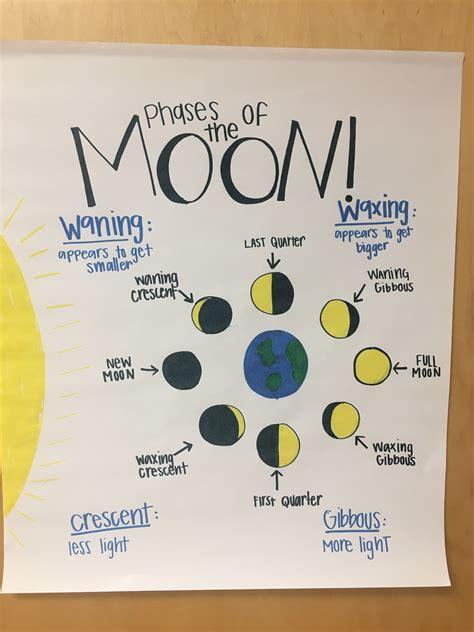 Phases of
the
MOON!
Waning:
appears to get
smaller
Waxing:
appears to get
bigger
LAST QUARTER
Waning
Crescent
Waning
Gibbous
NEW
MOON
FULL
MOON
Waxing
Crescent
Waxing
Gibbous
First Quarter
Crescent:
less light
Gibbous:
More light